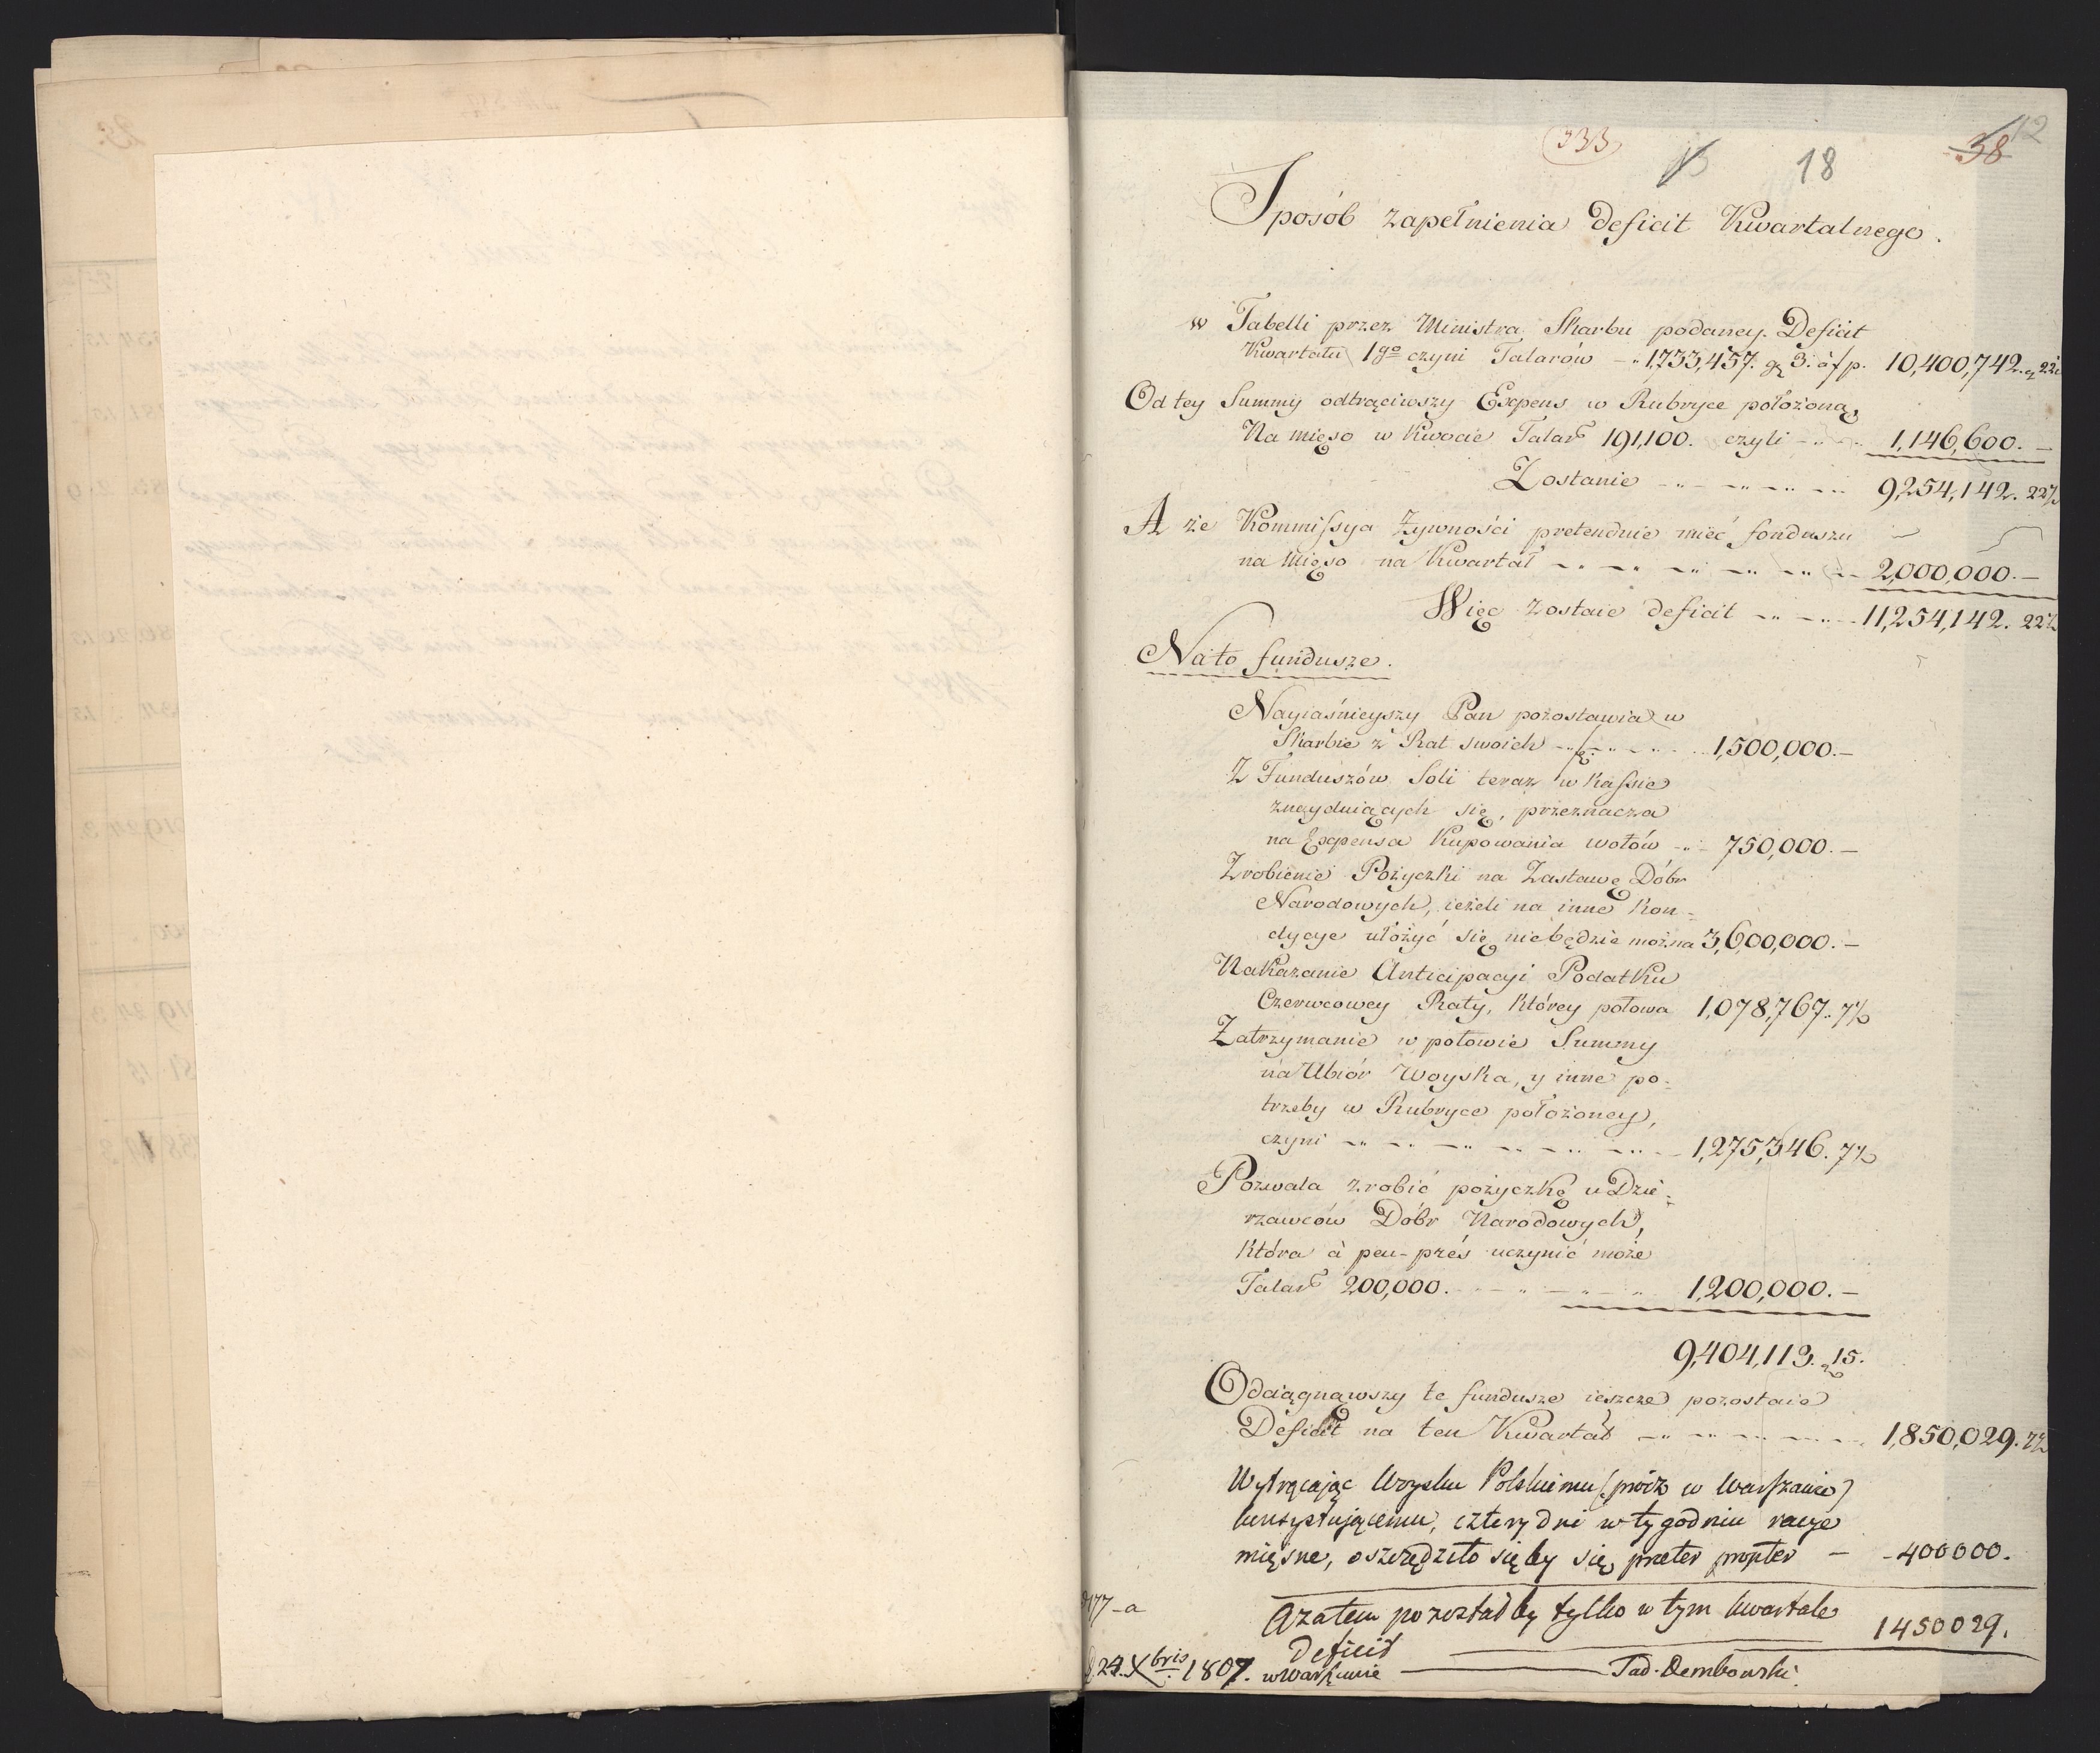 333
18
38
12
Sposób zapełnienia Deficit Kwartalnego.
w Tabelli przez Ministra Skarbu podaney. Deficit
Kwartału 1go czyni Talarów 1,733,457. gę 3. à f p. 10,400,742. 22½
Od tey Summy odtrąciwszy Expens w Rubryce położoną,
Na mięso w kwocie Talar 191,100. czyli 1,146,600. —
Zostanie 9,254,142. 22½
A że Kommissya Żywności pretenduie mieć fonduszu
na Mięso na Kwartał 2,000,000. —
Więc zostaie deficit 11,254,142. 22½
Na to fundusze.
Nayiaśnieyszy Pan pozostawia w
Skarbie z Rat swoich 1,500,000. —
Z Funduszów Soli teraz w Kassie
znayduiących się, przeznacza
na Expensa Kupowania wołów 750,000. —
Zrobienie Pożyczki na Zastawę Dóbr
Narodowych, ieżeli na inne Kon-
dycye ułożyć się niebędzie można 3,600,000. —
Nakazanie Anticipacyi Podatku
Czerwcowey Raty, którey połowa 1,078,767. 7½
Zatrzymanie w połowie Summy
na Ubiór Woyska, y inne po-
trzeby w Rubryce położoney,
czyni 1,275,346. 7½
Pozwala zrobić pożyczkę u Dzie-
rzawców Dóbr Narodowych,
która à peu-près uczynić może
Talar 200,000. 1,200,000. —
9,404,113. 15.
Odciągnąwszy te fundusze ieszcze pozostaie
Deficit na ten Kwartał 1,850,029. 7½
Wytrącając Woysku Polskiemu (prócz w Warszawie)
konsystującemu, cztery dni w tygodniu racye
mięsne, oszczędziło sięby się praeter propter — 400000.
A zatem pozostałby tylko w tym kwartale
deficit 1450029.
d. 24. Xbris 1807. w Warszawie Tad. Dembowski.